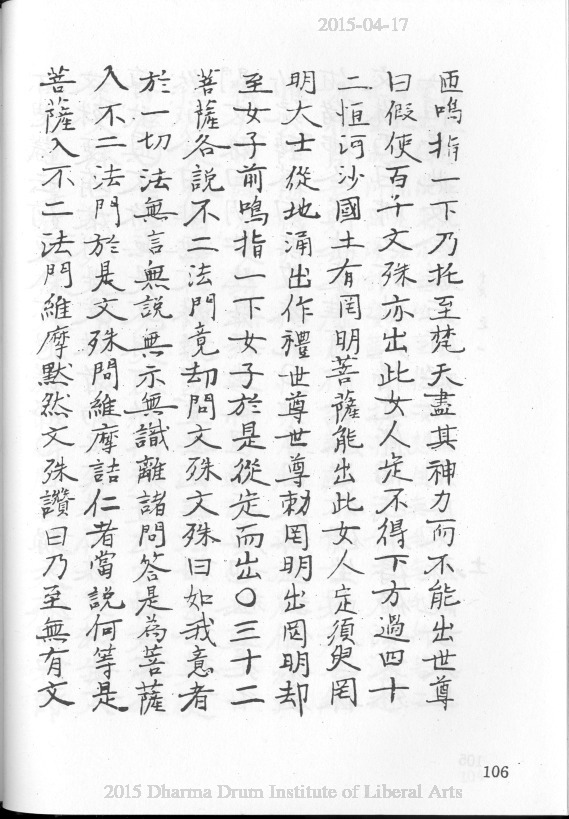 2015-04-17
匝鳴指一下乃托至梵天盡其神力而不能出世尊
曰假使百千文殊亦出此女人定不得下方過四十
二恒河沙國土有罔明菩薩能出此女人定須臾罔
明大士從地涌出作禮世尊世尊勅罔明出罔明却
至女子前鳴指一下女子於是從定而出〇三十二
菩薩各說不二法門竟却問文殊文殊曰如我意者
於一切法無言無說無示無識離諸問答是為菩薩
入不二法門於是文殊問維摩詰仁者當說何等是
菩薩入不二法門維摩默然文殊讚曰乃至無有文
106
2015 Dharma Drum Institute of Liberal Arts